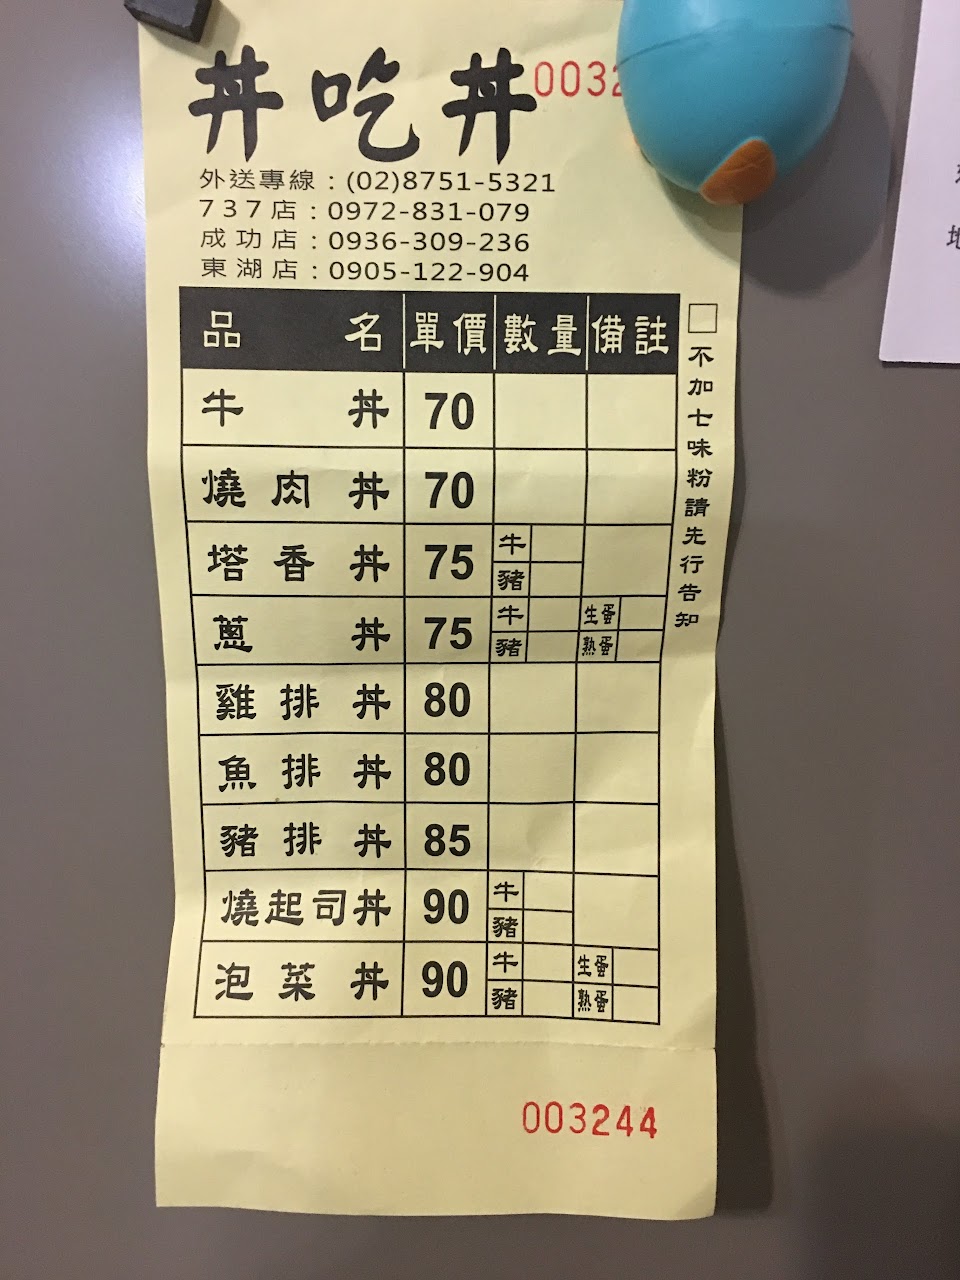 丼吃丼
0032
外送專線：(02)8751-5321
737店：0972-831-079
成功店：0936-309-236
東湖店：0905-122-904
品名 單價 數量 備註
牛丼 70
燒肉丼 70
塔香丼 75 牛 豬
蔥丼 75 牛 豬 生蛋 熟蛋
雞排丼 80
魚排丼 80
豬排丼 85
燒起司丼 90 牛 豬
泡菜丼 90 牛 豬 生蛋 熟蛋
□不加七味粉請先行告知
003244
地